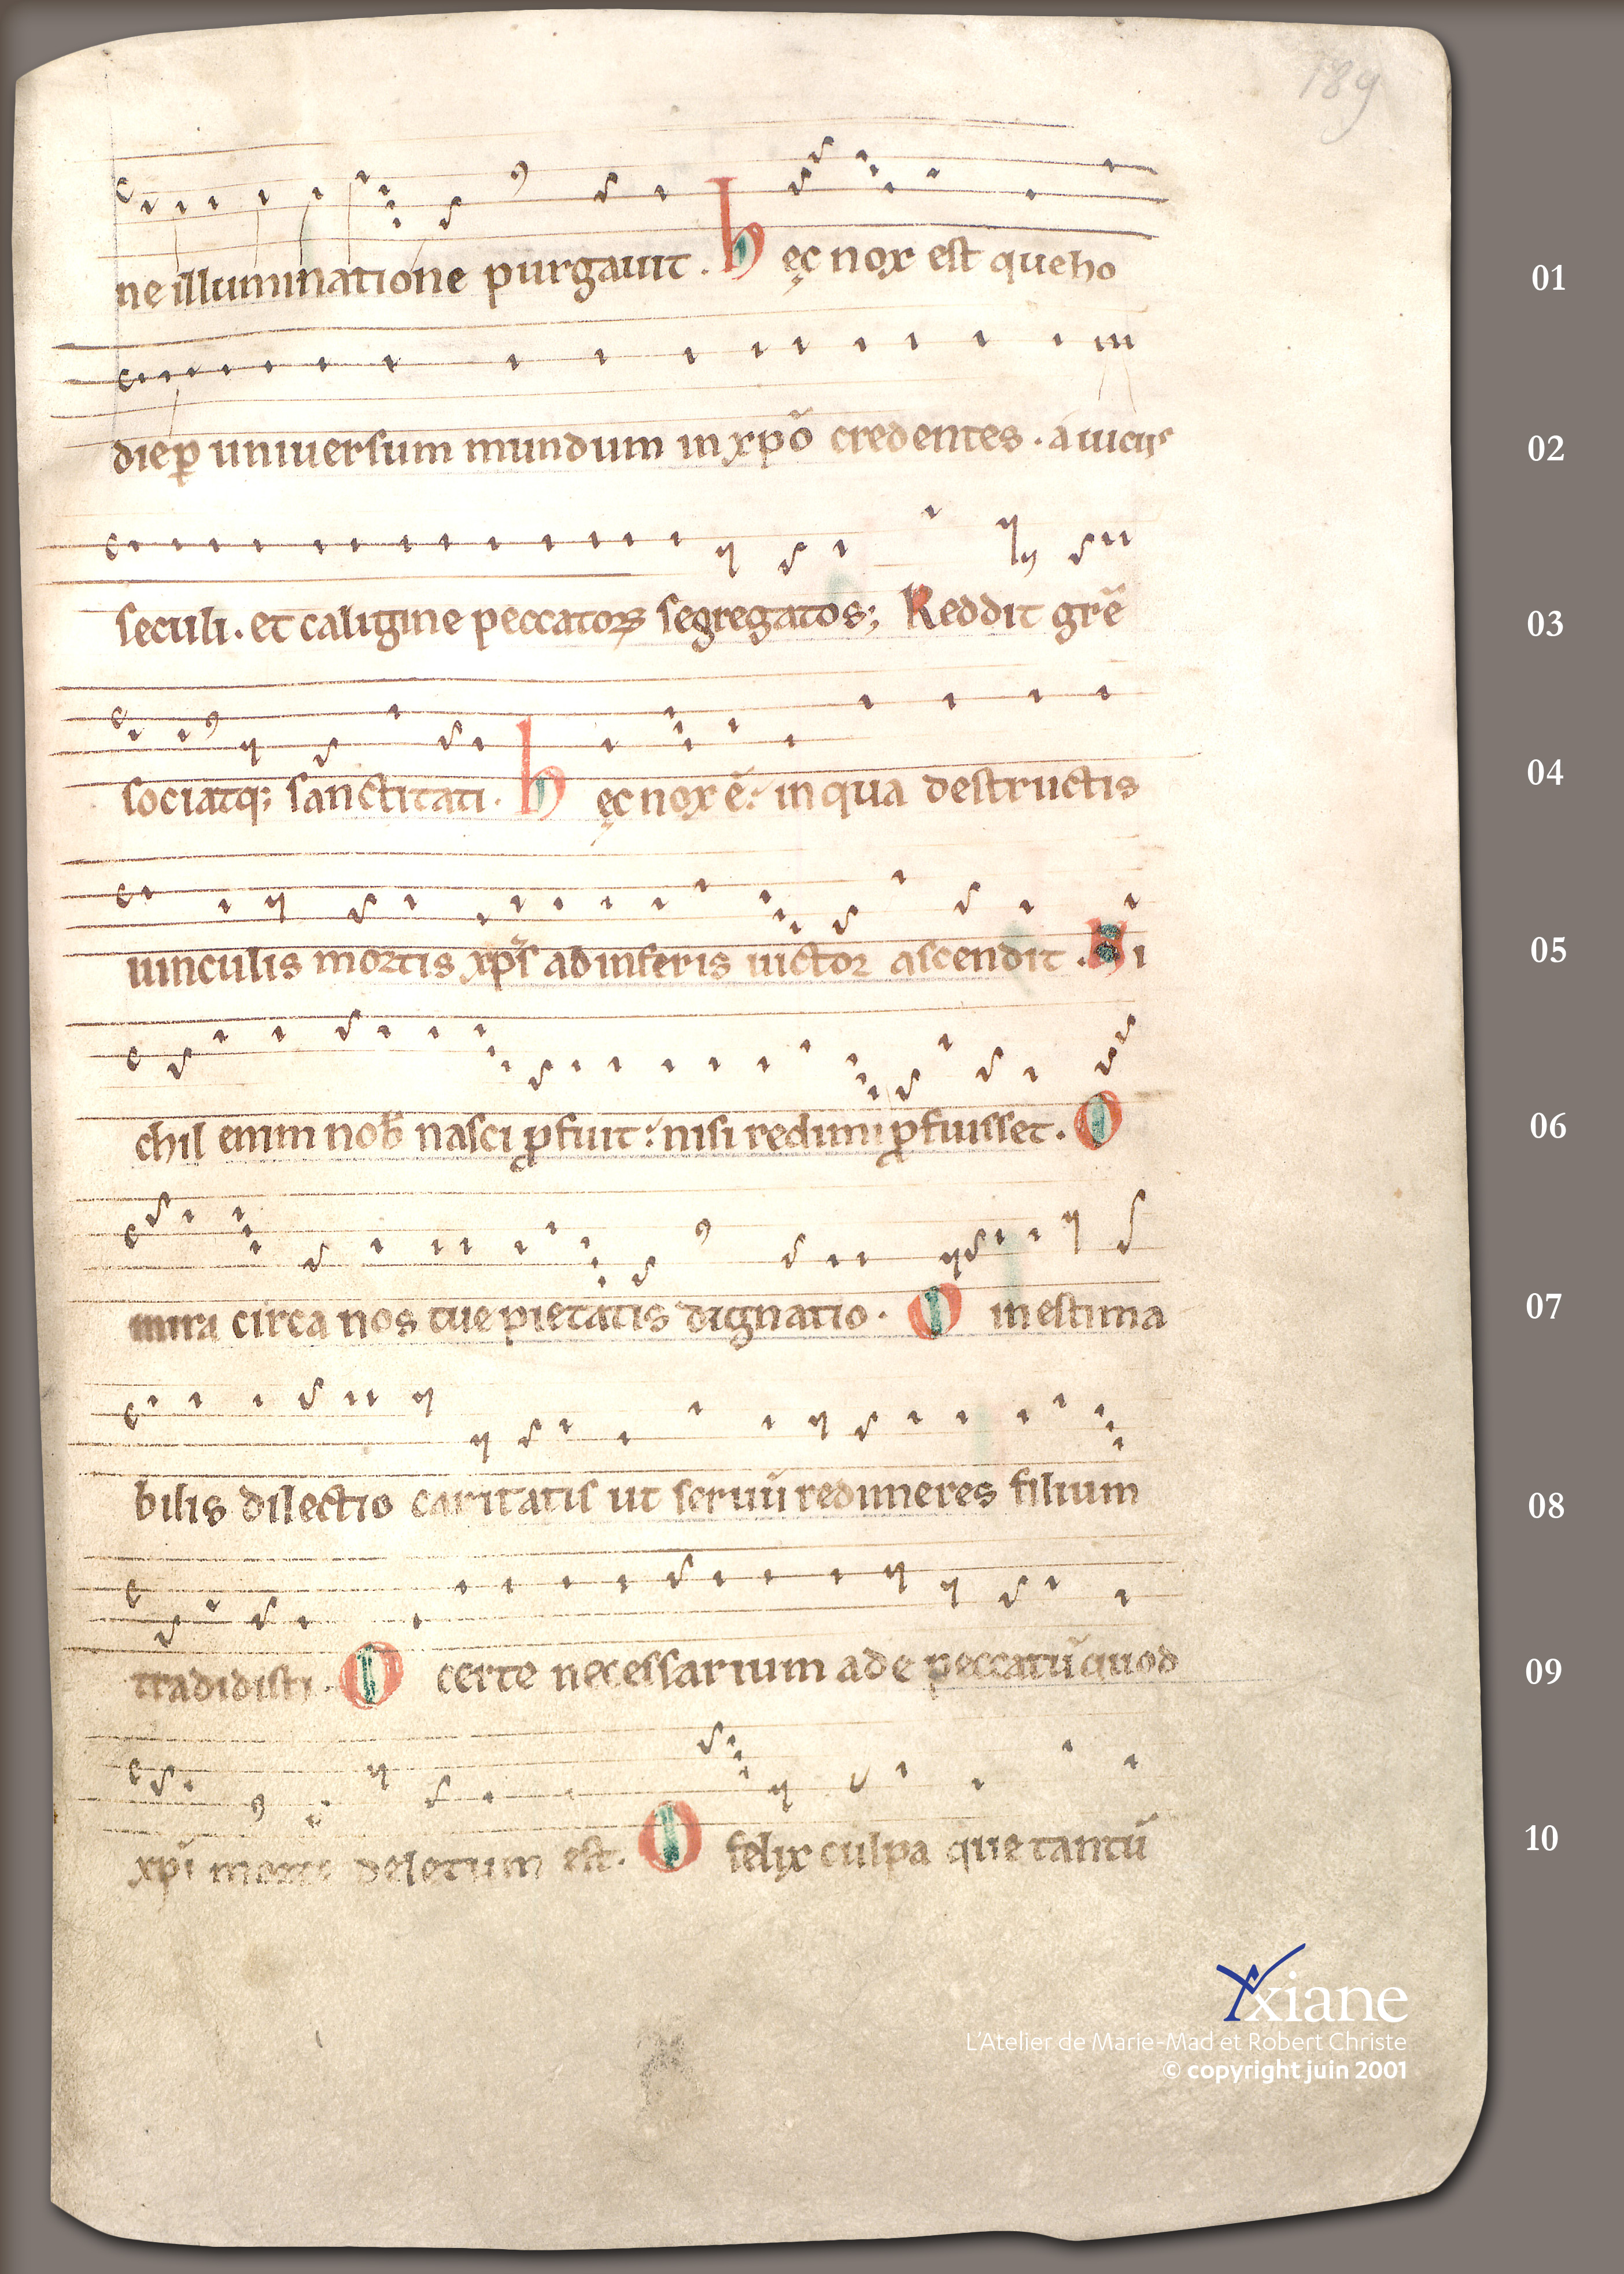 189
ne illuminatione purgauit. hęc nox est que ho
01
die ꝑ uniuersum mundum in xpō credentes. a uiciis
02
seculi. et caligine peccatoꝝ segregatos; Reddit grē
03
sociatq; sanctitati. hęc nox ē: in qua destructis
04
uinculis mortis xp̄s ab inferis uictor ascendit. Ni
05
chil enim nob̄ nasci ꝓfuit: nisi redimi ꝓfuisset. O
06
mira circa nos tue pietatis dignatio. O inestima
07
bilis dilectio caritatis ut seruū redimeres filium
08
tradidisti. O certe necessarium ade peccatū quod
09
xpī morte deletum est. O felix culpa que tantū
10
Yxiane
L'Atelier de Marie-Mad et Robert Christe
© copyright juin 2001